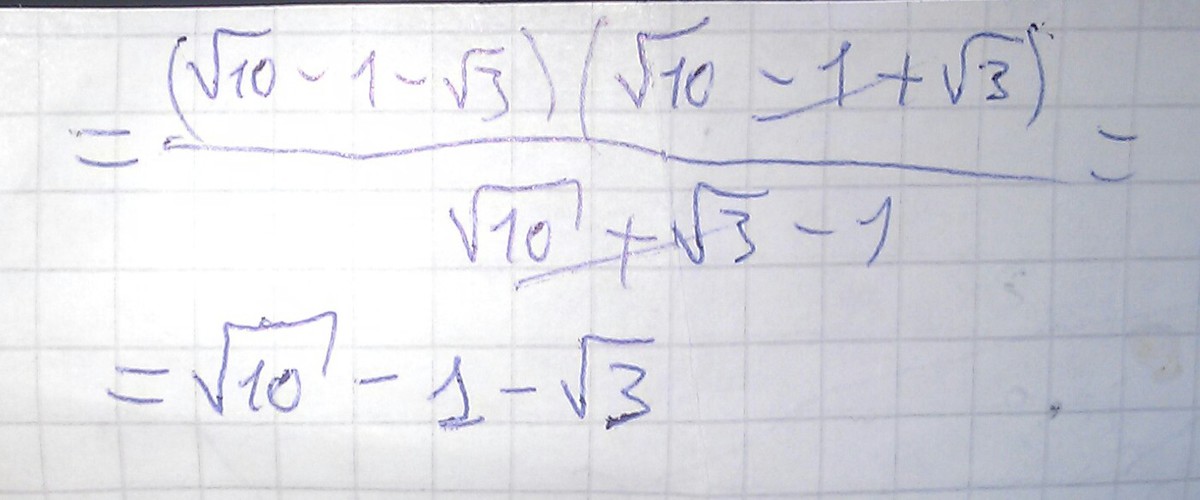 = (√10 - 1 - √3) (√10 - 1 + √3) =
√10 + √3 - 1
= √10 - 1 - √3